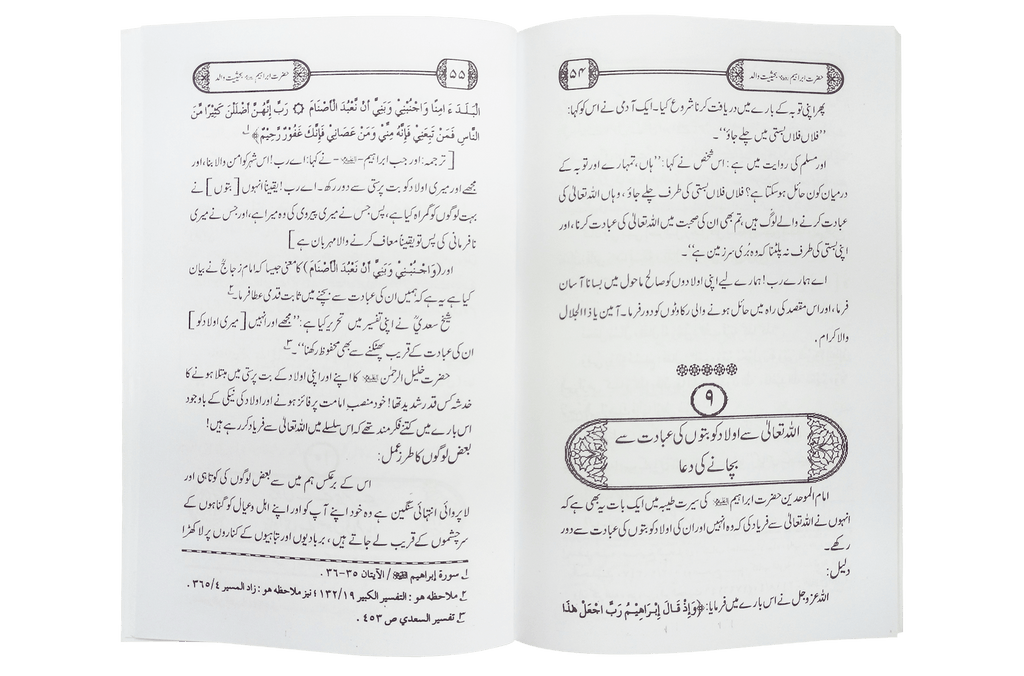 حضرت ابراہیم علیہ السلام بحیثیت والد
۵۴
پھر اپنی توبہ کے بارے میں دریافت کرنا شروع کیا۔ ایک آدمی نے اس کو کہا:
”فلاں فلاں بستی میں چلے جاؤ“۔
اور مسلم کی روایت میں ہے: اس شخص نے کہا: ”ہاں، تمہارے اور توبہ کے
درمیان کون حائل ہوسکتا ہے؟ فلاں فلاں بستی کی طرف چلے جاؤ، وہاں اللہ تعالیٰ کی
عبادت کرنے والے لوگ ہیں، تم بھی ان کی صحبت میں اللہ تعالیٰ کی عبادت کرنا، اور
اپنی بستی کی طرف نہ پلٹنا کہ وہ بُری سرزمین ہے“۔
اے ہمارے رب! ہمارے لیے اپنی اولادوں کو صالح ماحول میں بسانا آسان
فرما، اور اس مقصد کی راہ میں حائل ہونے والی رکاوٹوں کو دور فرما۔ آمین یا ذا الجلال
والاکرام.
۹
اللہ تعالیٰ سے اولاد کو بتوں کی عبادت سے
بچانے کی دعا
امام الموحدین حضرت ابراہیم علیہ السلام کی سیرت طیبہ میں ایک بات یہ بھی ہے کہ
انہوں نے اللہ تعالیٰ سے فریاد کی کہ وہ انہیں اور ان کی اولاد کو بتوں کی عبادت سے دور
رکھے۔
دلیل:
اللہ عزوجل نے اس بارے میں فرمایا: ﴿وَإِذْ قَالَ إِبْرَاهِيْمُ رَبِّ اجْعَلْ هٰذَا
حضرت ابراہیم علیہ السلام بحیثیت والد
۵۵
الْبَلَدَ ءَامِنًا وَاجْنُبْنِيْ وَبَنِيَّ أَنْ نَّعْبُدَ الْأَصْنَامَ ۞ رَبِّ إِنَّهُنَّ أَضْلَلْنَ كَثِيْرًا مِّنَ
النَّاسِ فَمَنْ تَبِعَنِيْ فَإِنَّهُ مِنِّيْ وَمَنْ عَصَانِيْ فَإِنَّكَ غَفُوْرٌ رَّحِيْمٌ﴾ ۱
[ترجمہ: اور جب ابراہیم -علیہ السلام- نے کہا: اے رب! اس شہر کو امن والا بنا، اور
مجھے اور میری اولاد کو بت پرستی سے دور رکھ۔ اے رب! یقیناً انہوں [بتوں] نے
بہت لوگوں کو گمراہ کیا ہے، پس جس نے میری پیروی کی وہ میرا ہے، اور جس نے میری
نافرمانی کی پس تو یقیناً معاف کرنے والا مہربان ہے]
اور (وَاجْنُبْنِيْ وَبَنِيَّ أَنْ نَّعْبُدَ الْأَصْنَامَ) کا معنی جیسا کہ امام زجاجؒ نے بیان
کیا ہے یہ ہے کہ ہمیں ان کی عبادت سے بچنے میں ثابت قدمی عطا فرما۔ ۲
شیخ سعدیؒ نے اپنی تفسیر میں تحریر کیا ہے: ”مجھے اور انہیں [میری اولاد کو]
ان کی عبادت کے قریب پھٹکنے سے بھی محفوظ رکھنا“۔ ۳
حضرت خلیل الرحمٰن علیہ السلام کا اپنے اور اپنی اولاد کے بت پرستی میں مبتلا ہونے کا
خدشہ کس قدر شدید تھا! خود منصبِ امامت پر فائز ہونے اور اولاد کی نیکی کے باوجود
اس بارے میں کتنے فکر مند تھے کہ اس سلسلے میں اللہ تعالیٰ سے فریاد کر رہے ہیں!
بعض لوگوں کا طرزِ عمل:
اس کے برعکس ہم میں سے بعض لوگوں کی کوتاہی اور
لاپروائی انتہائی سنگین ہے وہ خود اپنے آپ کو اور اپنے اہل وعیال کو گناہوں کے
سرچشموں کے قریب لے جاتے ہیں، بربادیوں اور تباہیوں کے کناروں پر لا کھڑا
۱ سورة إبراهيم علیہ السلام/ الآيتان ۳۵-۳۶.
۲ ملاحظہ ہو: التفسير الكبير ۱۳۲/۱۹؛ نیز ملاحظہ ہو: زاد المسير ۳۶۵/۴.
۳ تفسير السعدي ص ۴۵۳.